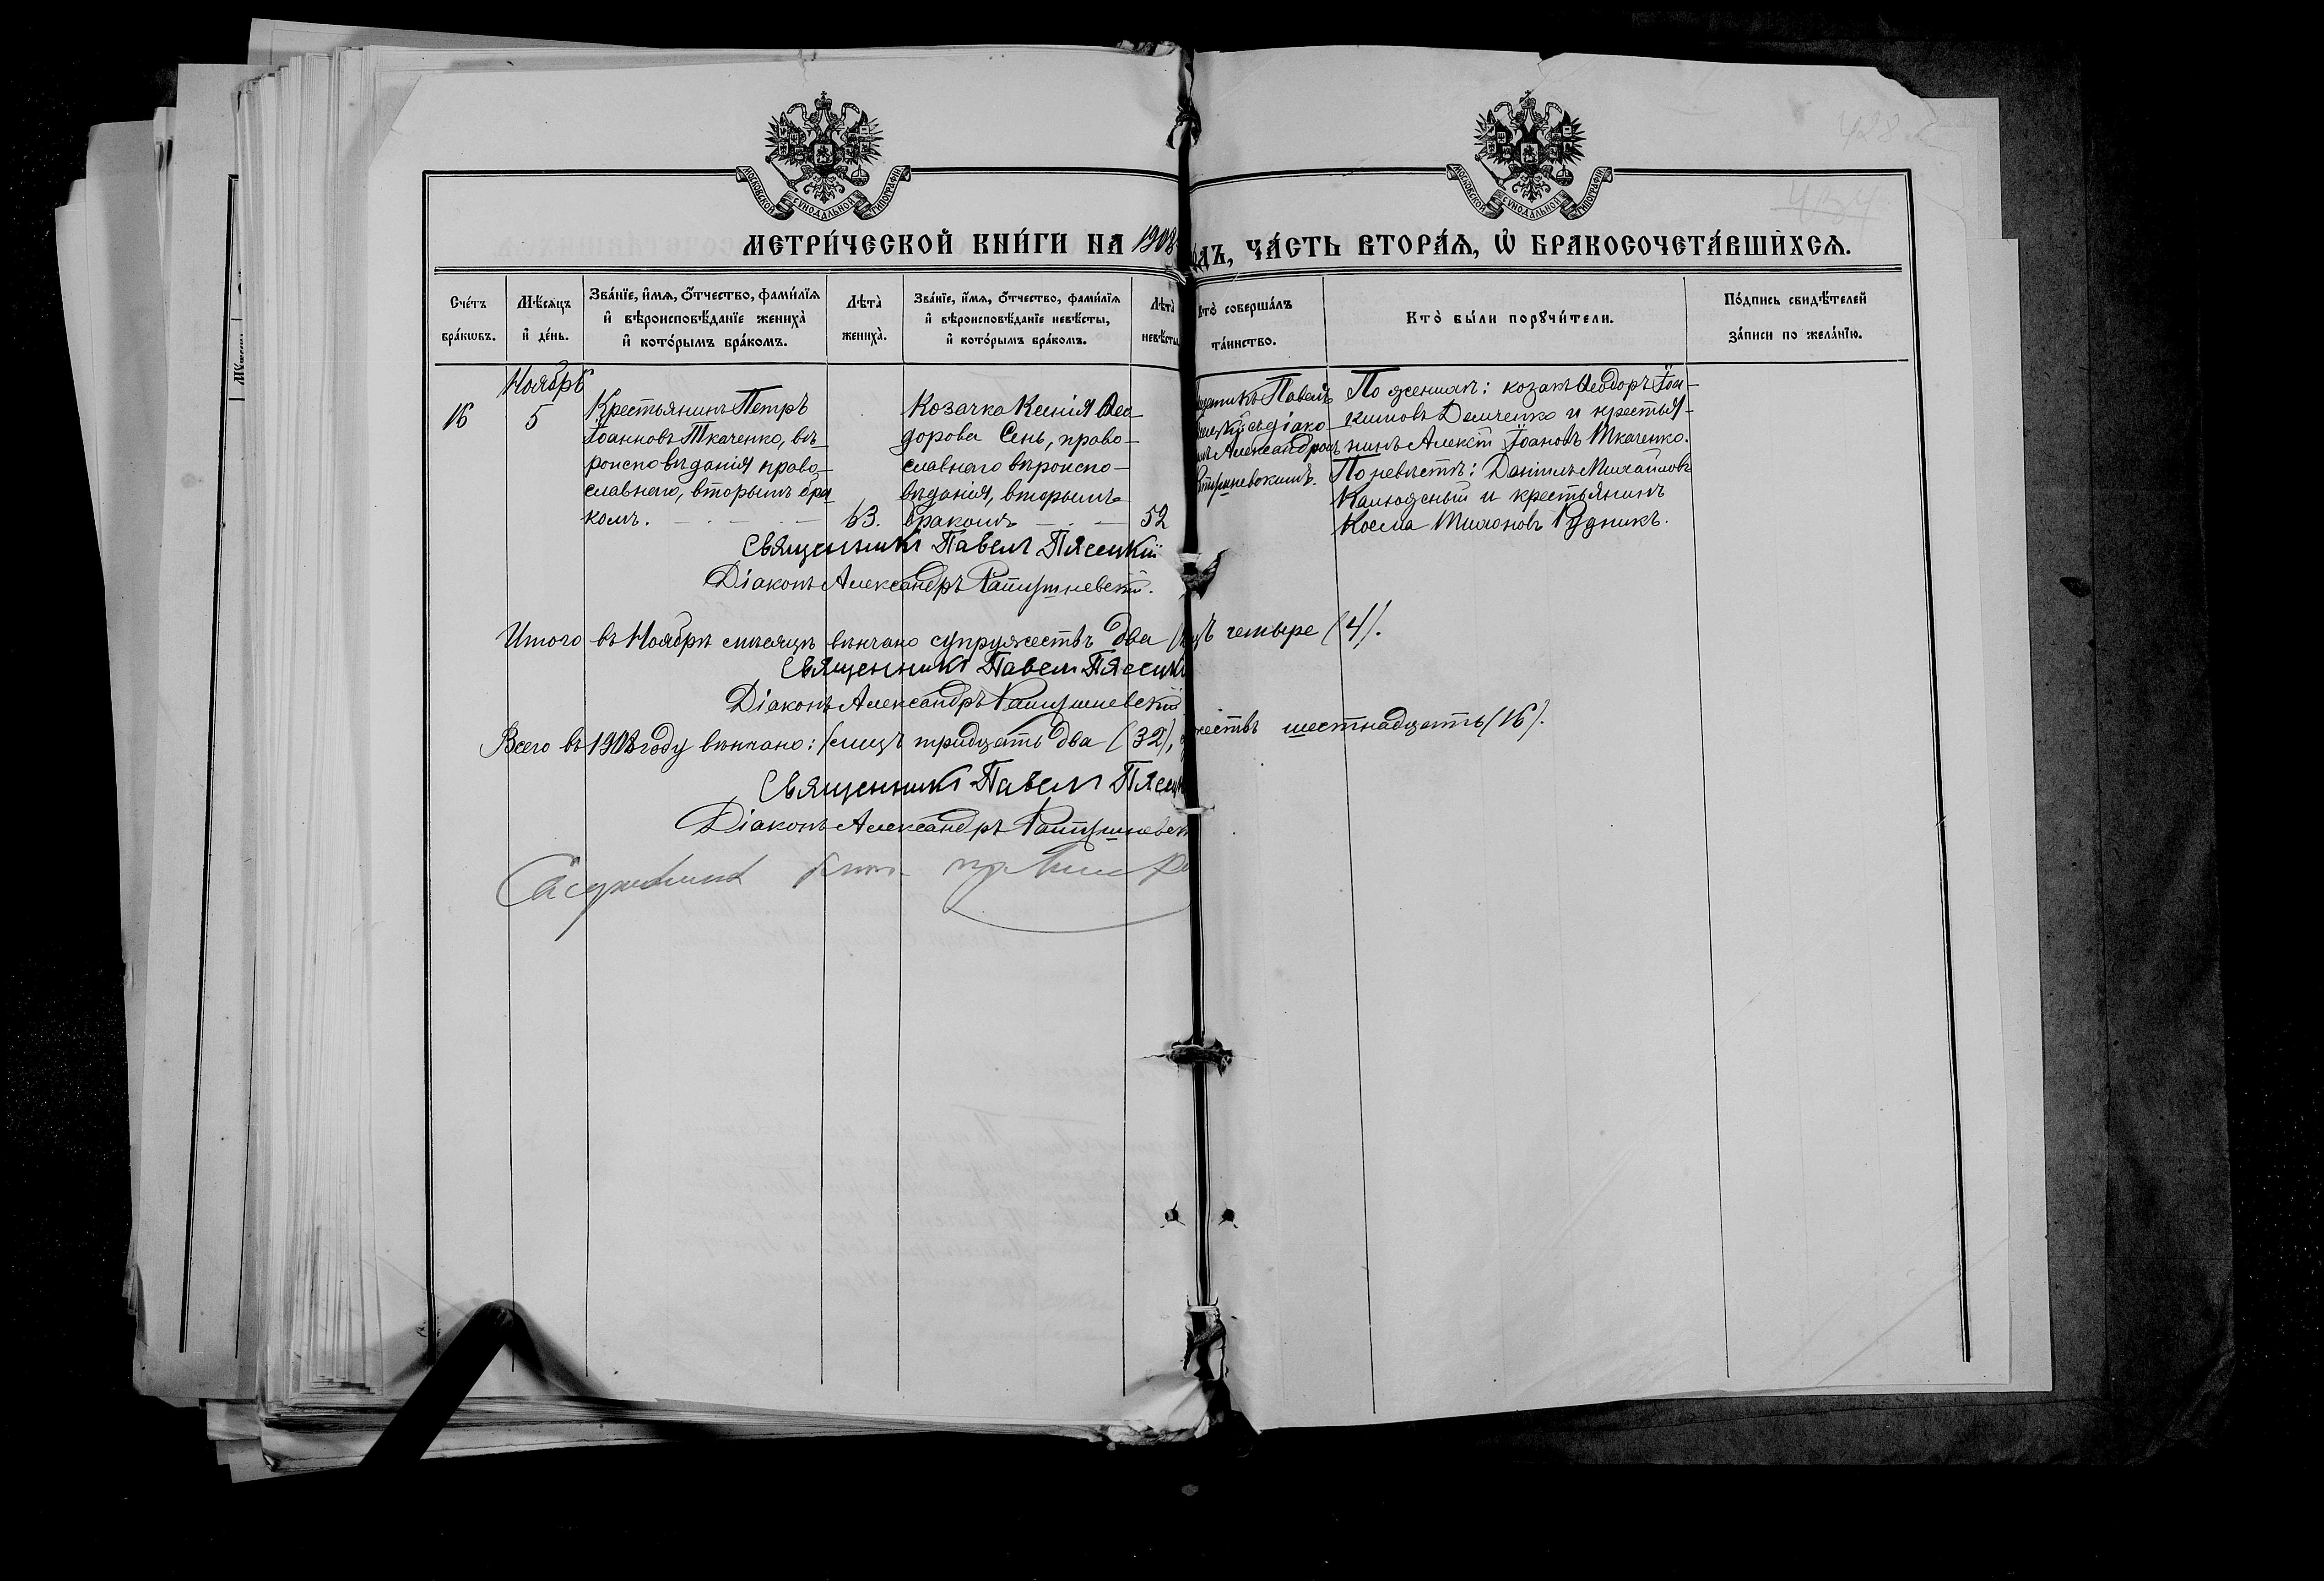 428
434
МОСКОВСКОЙ СѴНОДАЛЬНОЙ ТИПОГРАФІИ
МОСКОВСКОЙ СѴНОДАЛЬНОЙ ТИПОГРАФІИ
МЕТРИ́ЧЕСКОЙ КНИ́ГИ НА 1908
ДЪ, ЧА́СТЬ ВТОРА́Я, Ѡ҆ БРАКОСОЧЕТА́ВШИХСЯ.
Сче́тъ
бра́кѡвъ.
Мѣ́сяцъ
и҆ де́нь.
Зва́нїе, и҆́мя, ѻ҆́тчество, фами́лїя
и҆ вѣроисповѣ́данїе жениха̀
и҆ кото́рымъ бра́комъ.
Лѣта̀
жениха̀.
Зва́нїе, и҆́мя, ѻ҆́тчество, фами́лїя
и҆ вѣроисповѣ́данїе невѣ́сты,
и҆ кото́рымъ бра́комъ.
Лѣта̀
невѣ́сты
Кто̀ соверша́лъ
та́инство.
Кто̀ бы́ли порꙋчи́тели.
По́дпись свидѣ́телей
за́писи по жела́нїю.
16
Ноябрь
5
Крестьянинъ Петръ
Іоанновъ Ткаченко, вѣ-
роисповѣданія право-
славнаго, вторымъ бра
комъ.
63.
Козачка Ксенія Ѳео-
дорова Сень, право-
славнаго вѣроиспо-
вѣданія, вторымъ
бракомъ
52
Павелъ
діако-
Александромъ
По женихѣ: козакъ Ѳеодоръ Іоа-
кимовъ Демченко и крестья-
нинъ Алексѣй Іоановъ Ткаченко.
По невѣстѣ: Даніилъ Михайловъ
Калюжный и крестьянинъ
Косма Тихоновъ Рудникъ.
Священникъ Павелъ Пясецкій
Діаконъ Александръ
Итого въ Ноябрѣ мѣсяцѣ вѣнчано супружествъ два лицъ четыре (4).
Священникъ Павелъ
Діаконъ Александръ
Всего въ 1908 году вѣнчано: лицъ тридцать два (32), жествъ шестнадцать (16).
Священникъ Павелъ
Діаконъ Александръ